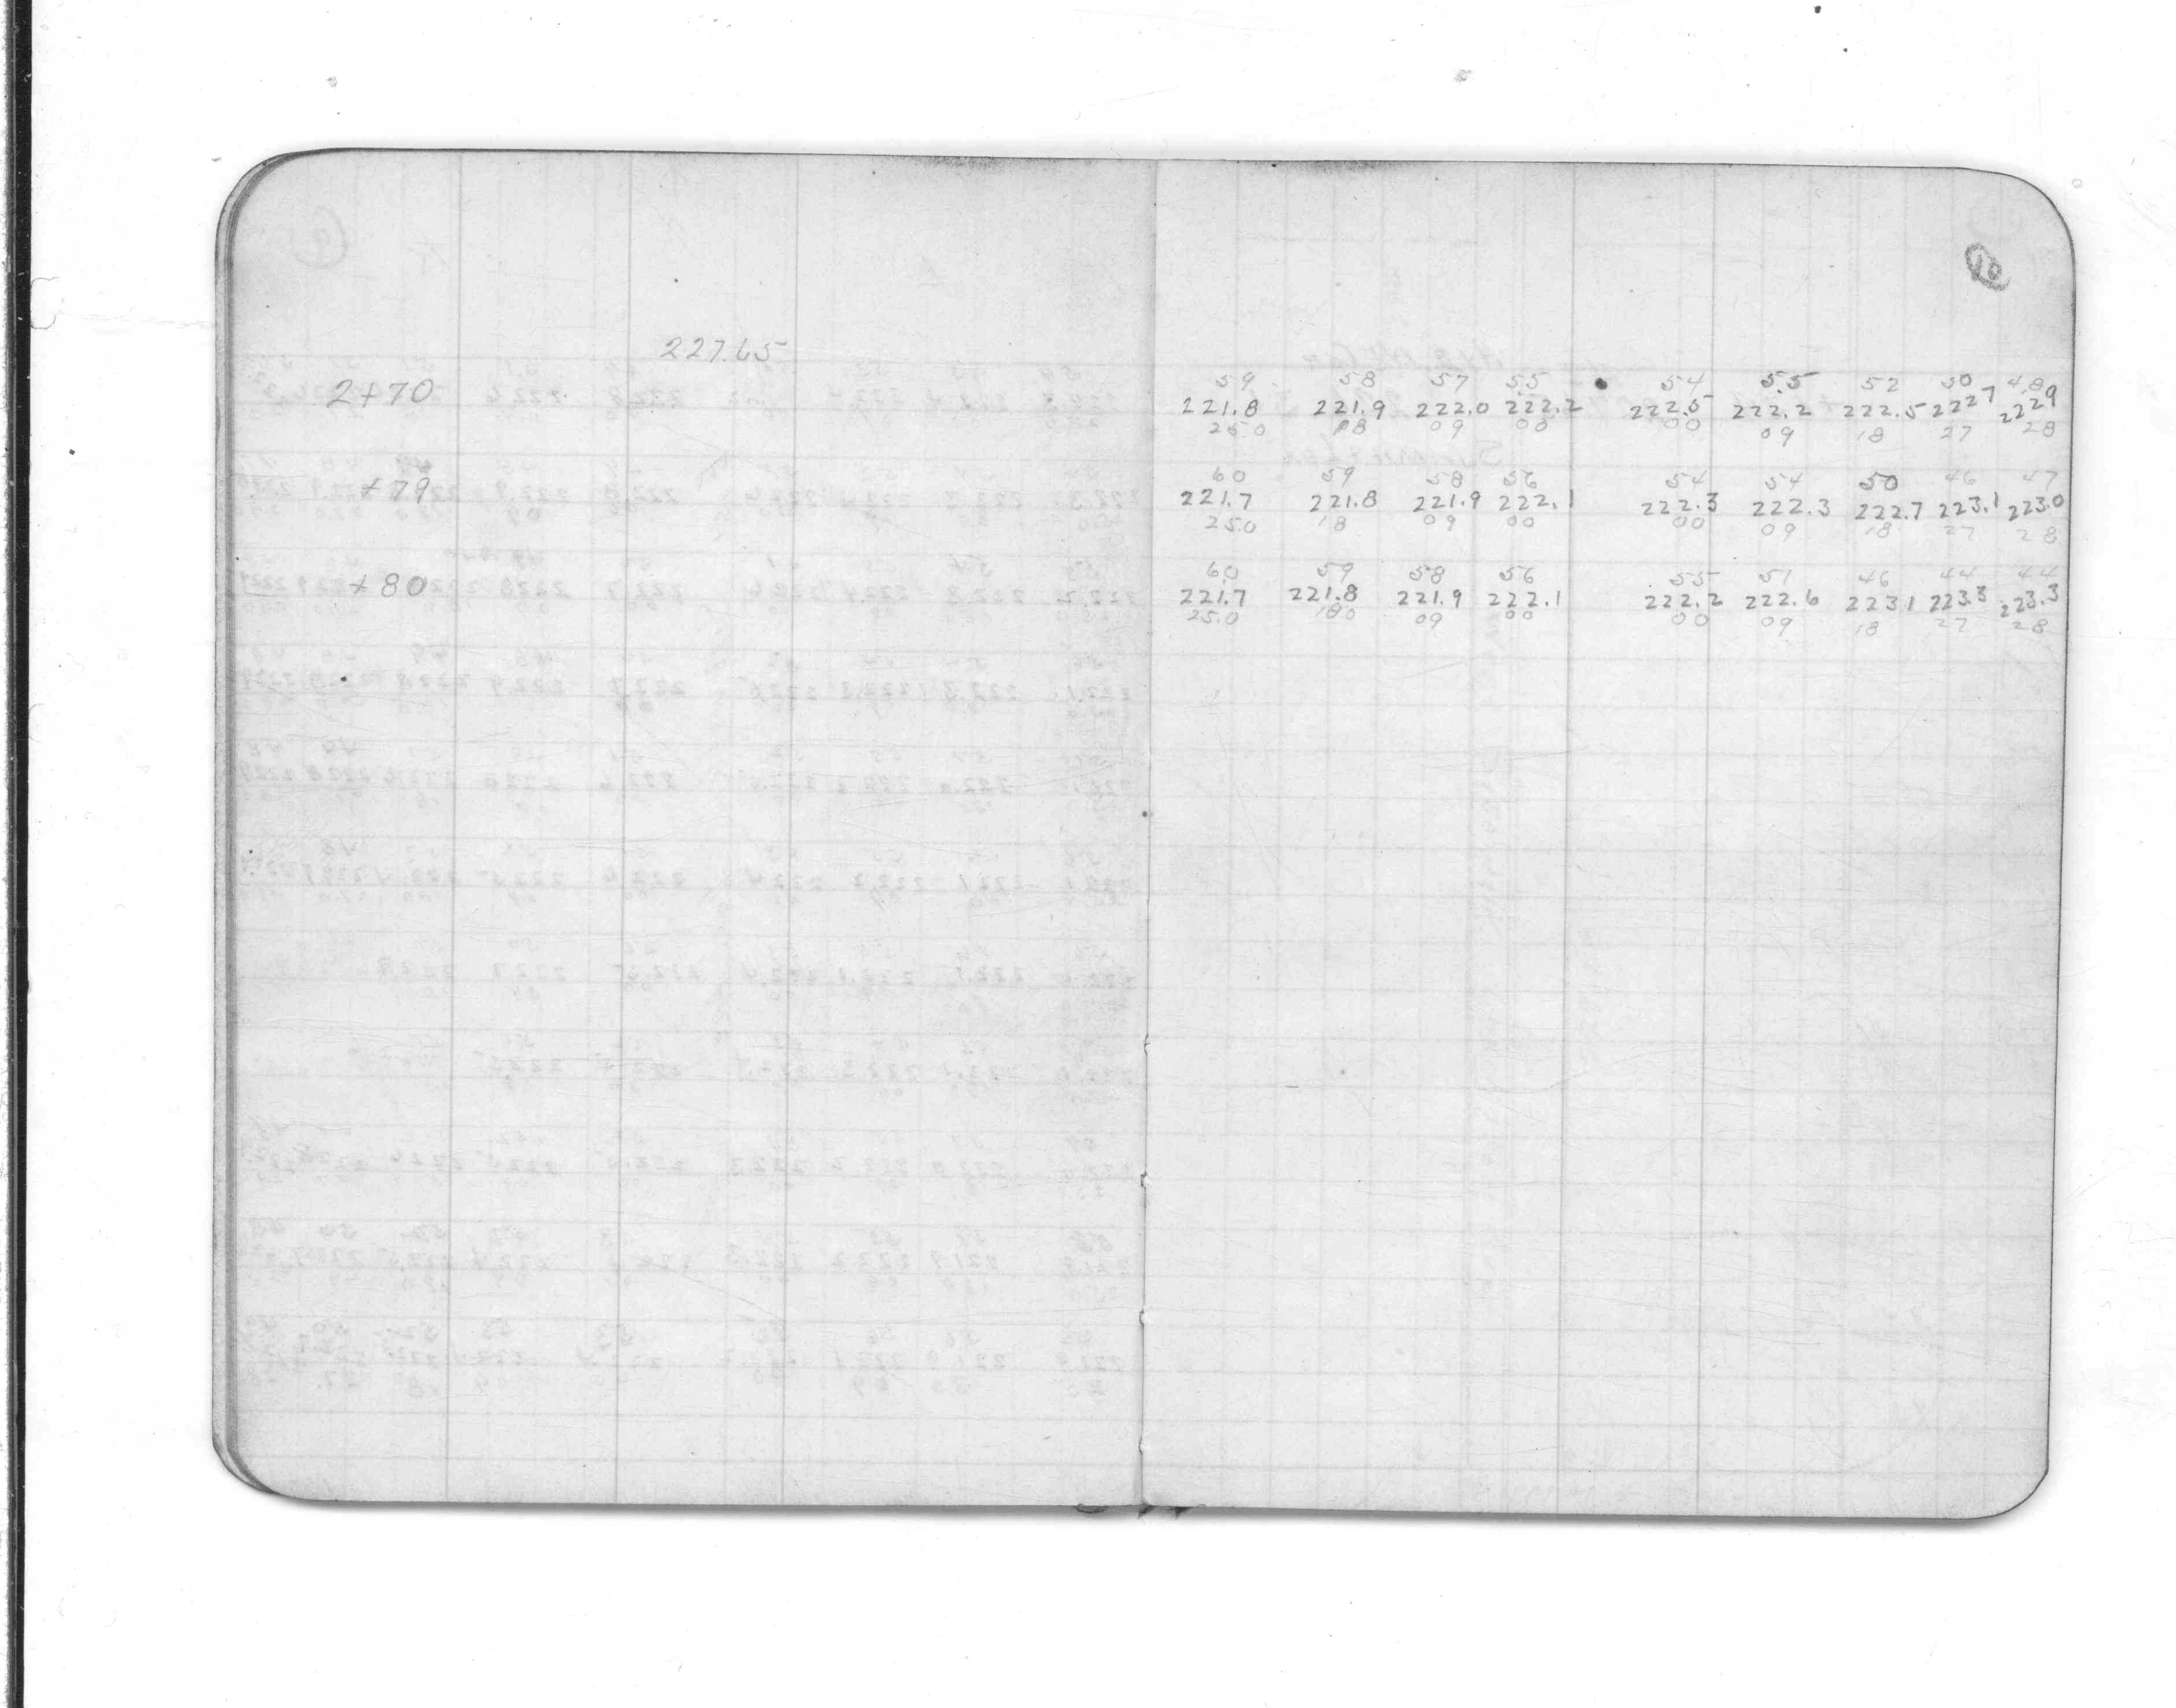 10
227.65
59 58 57 55 54 55 52 50 48
2+70 221.8 221.9 222.0 222.2 222.5 222.2 222.5 222 7 222 9
25.0 18 09 00 00 09 18 27 28
60 59 58 56 54 54 50 46 47
+79 221.7 221.8 221.9 222.1 222.3 222.3 222.7 223.1 223.0
25.0 18 09 00 00 09 18 27 28
60 59 58 56 55 51 46 44 44
+80 221.7 221.8 221.9 222.1 222.2 222.6 223 1 223.3 223.3
25.0 18 0 09 00 00 09 18 27 28